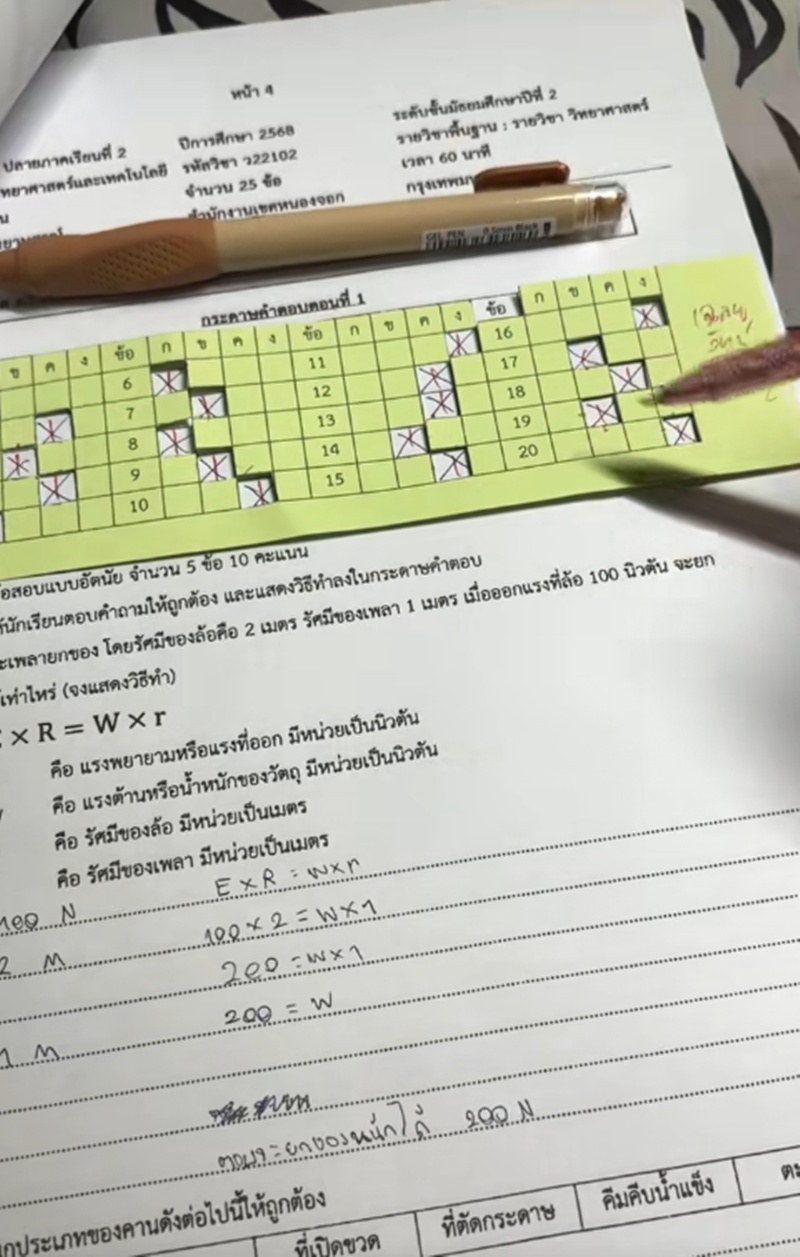 หน้า 4
ปลายภาคเรียนที่ 2 ปีการศึกษา 2568 ระดับชั้นมัธยมศึกษาปีที่ 2
ทยาศาสตร์และเทคโนโลยี รหัสวิชา ว22102 รายวิชาพื้นฐาน : รายวิชา วิทยาศาสตร์
น จำนวน 25 ข้อ เวลา 60 นาที
สำนักงานเขตหนองจอก กรุงเทพม
GEL PEN 0.5mm Black
กระดาษคำตอบตอนที่ 1
ข ค ง ข้อ ก ข ค ง ข้อ ก ข ค ง ข้อ ก ข ค ง
6 11 16
7 12 17
8 13 18
9 14 19
10 15 20
อสอบแบบอัตนัย จำนวน 5 ข้อ 10 คะแนน
ห้นักเรียนตอบคำถามให้ถูกต้อง และแสดงวิธีทำลงในกระดาษคำตอบ
ะเพลายกของ โดยรัศมีของล้อคือ 2 เมตร รัศมีของเพลา 1 เมตร เมื่อออกแรงที่ล้อ 100 นิวตัน จะยก
เท่าไหร่ (จงแสดงวิธีทำ)
× R = W × r
คือ แรงพยายามหรือแรงที่ออก มีหน่วยเป็นนิวตัน
คือ แรงต้านหรือน้ำหนักของวัตถุ มีหน่วยเป็นนิวตัน
คือ รัศมีของล้อ มีหน่วยเป็นเมตร
คือ รัศมีของเพลา มีหน่วยเป็นเมตร
100 N E × R = W × r
2 M 100 × 2 = W × 1
200 = W × 1
1 M 200 = W
ตอบ จะยกของหนักได้ 200 N
กประเภทของคานดังต่อไปนี้ให้ถูกต้อง
ที่เปิดขวด ที่ตัดกระดาษ คีมคีบน้ำแข็ง ตะ